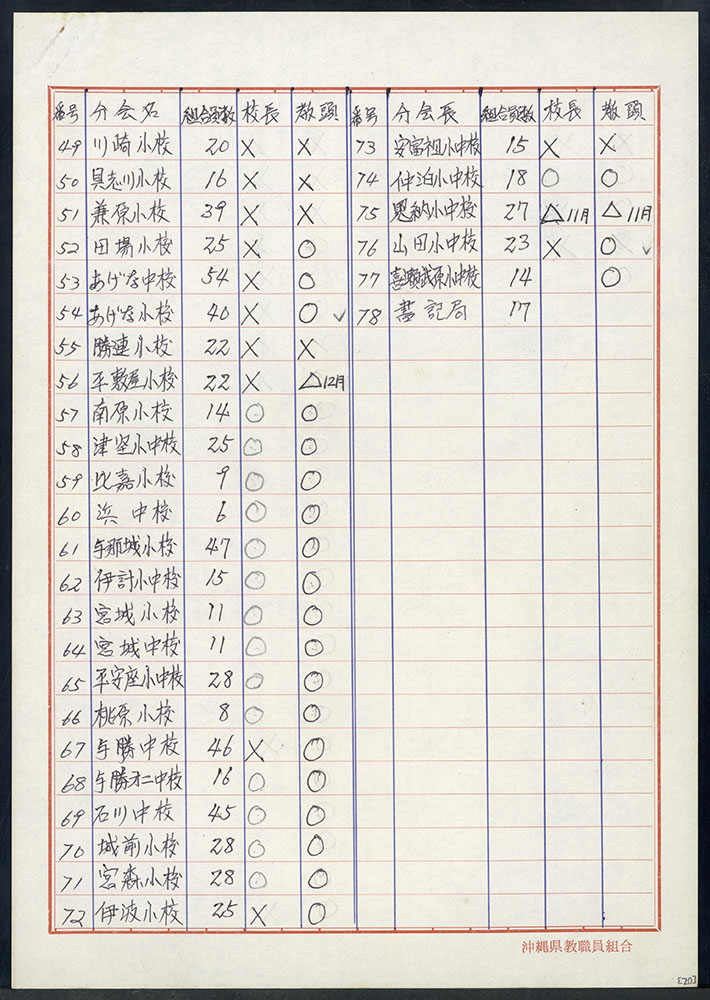 番号 分会名 組合員数 校長 教頭
49 川崎小校 20 X X
50 具志川小校 16 X X
51 兼原小校 39 X X
52 田場小校 25 X ○
53 あげな中校 54 X ○
54 あげな小校 40 X ○ ✓
55 勝連小校 22 X X
56 平敷屋小校 22 X △12月
57 南原小校 14 ○ ○
58 津堅小中校 25 ○ ○
59 比嘉小校 9 ○ ○
60 浜中校 6 ○ ○
61 与那城小校 47 ○ ○
62 伊計小中校 15 ○ ○
63 宮城小校 11 ○ ○
64 宮城中校 11 ○ ○
65 平安座小中校 28 ○ ○
66 桃原小校 8 ○ ○
67 与勝中校 46 X ○
68 与勝才二中校 16 ○ ○
69 石川中校 45 ○ ○
70 城前小校 28 ○ ○
71 宮森小校 28 ○ ○
72 伊波小校 25 X ○
番号 分会長 組合員数 校長 教頭
73 安富祖小中校 15 X X
74 仲泊小中校 18 ○ ○
75 恩納小中校 27 △11月 △11月
76 山田小中校 23 X ○ ✓
77 喜瀬武原小中校 14 ○
78 書記局 17
沖縄県教職員組合
[20]